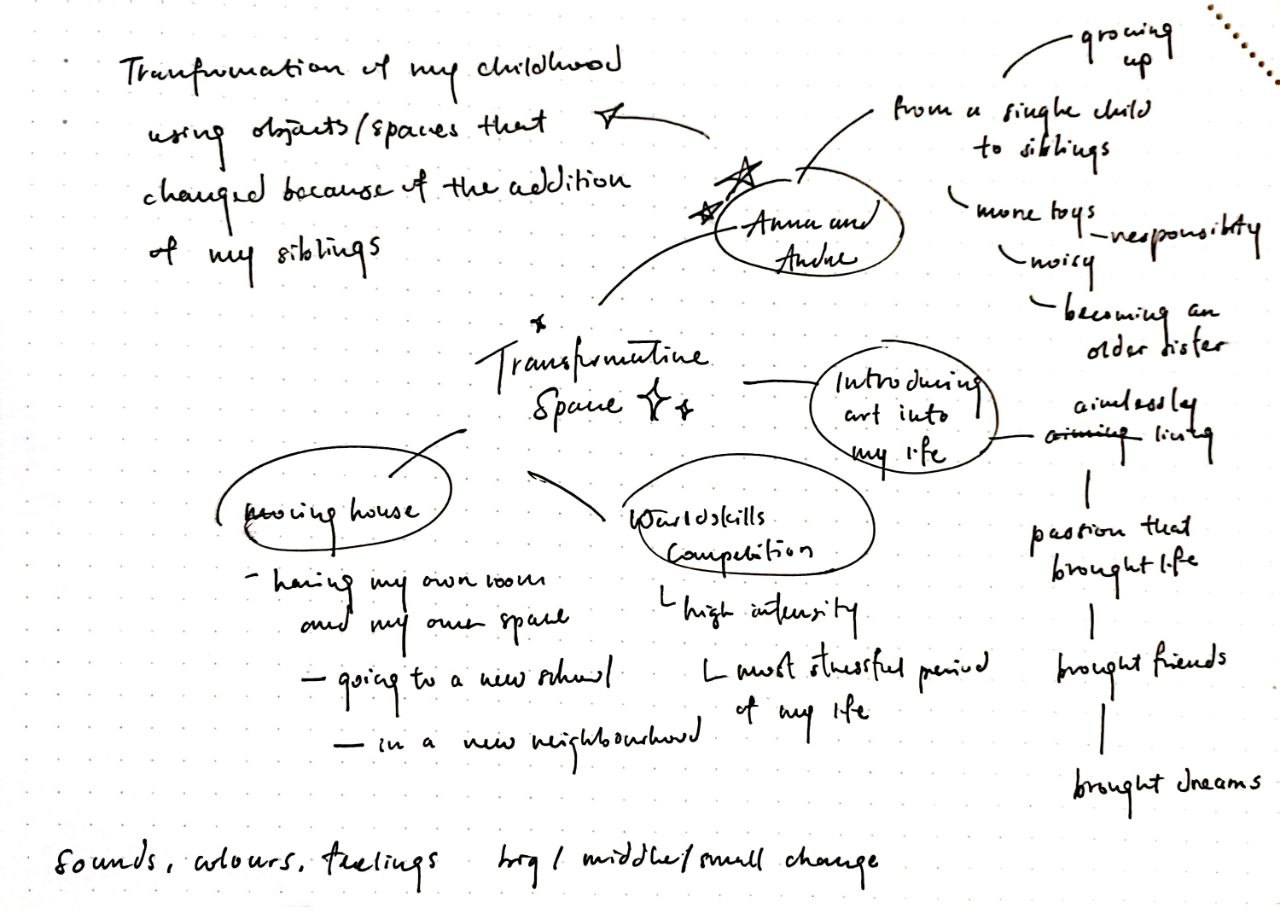 Tranformation of my childhood
using objects/spaces that
changed because of the addition
of my siblings
growing
up
from a single child
to siblings
more toys
responsibility
noisy
becoming an
older sister
Anna and
Andre
Transformative
Space
Introducing
art into
my life
aimlessly
aiming living
passion that
brought life
brought friends
brought dreams
moving house
- having my own room
and my own space
- going to a new school
- in a new neighbourhood
Worldskills
Competition
high intensity
most stressful period
of my life
Sounds, colours, feelings big / middle / small change